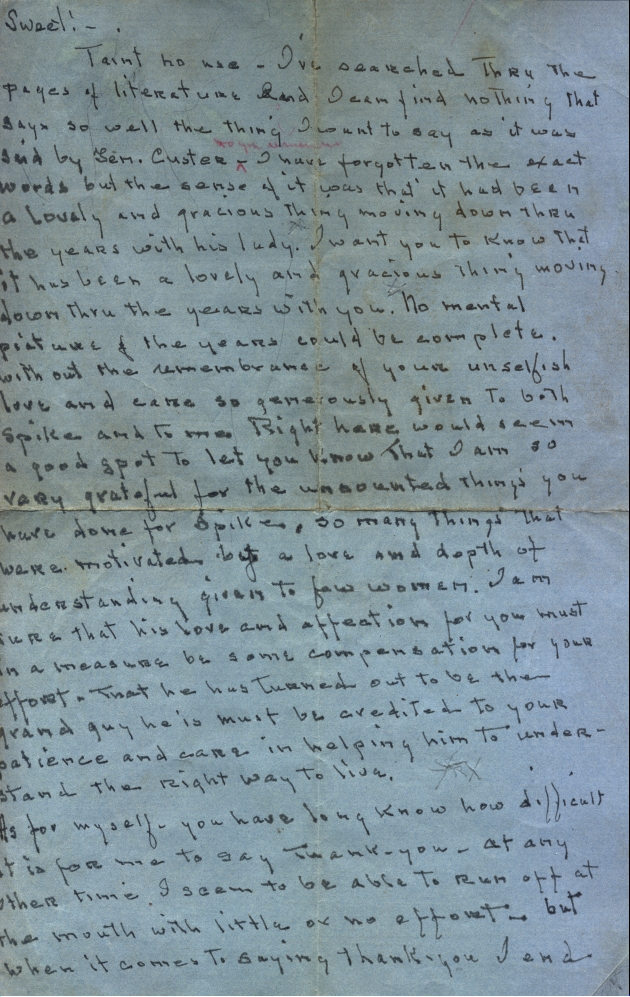 Sweet! - .
Taint no use - I've searched thru the
pages of literature and I can find nothing that
says so well the thing I want to say as it was
as you remember
said by Gen. Custer - I have forgotten the exact
words but the sense of it was that it had been
a lovely and gracious thing moving down thru
the years with his lady. I want you to know that
it has been a lovely and gracious thing moving
down thru the years with you. No mental
picture of the years could be complete.
with out the remembrance of your unselfish
love and care so generously given to both
Spike and to me Right here would seem
a good spot to let you know that I am so
very grateful for the uncounted things you
have done for Spike, so many things that
were motivated by a love and depth of
understanding given to few women. I am
sure that his love and affection for you must
in a measure be some compensation for your
effort - That he has turned out to be the
grand guy he is must be credited to your
patience and care in helping him to under-
stand the right way to live.
As for myself - you have long know how difficult
it is for me to say thank-you - at any
other time I seem to be able to run off at
the mouth with little or no effort - but
when it comes to saying thank-you I end